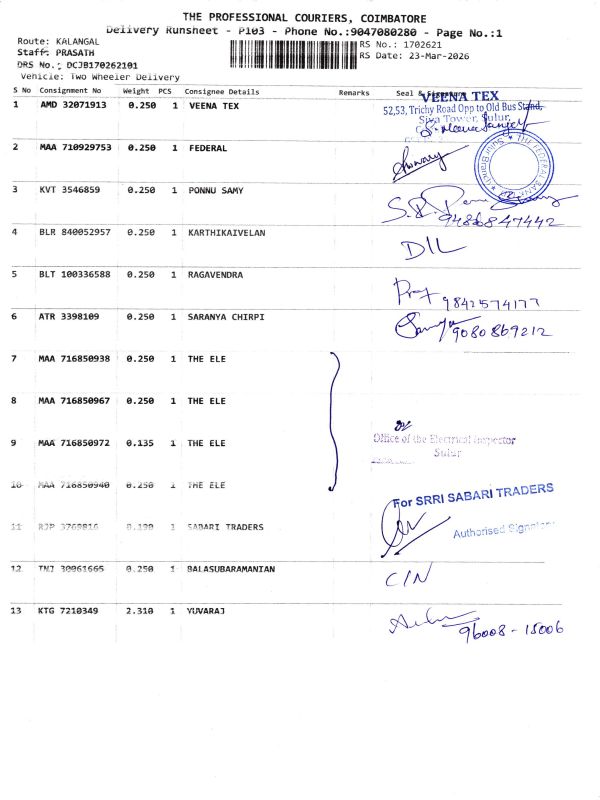 THE PROFESSIONAL COURIERS, COIMBATORE
Delivery Runsheet - P103 - Phone No.:9047080280 - Page No.:1
Route: KALANGAL
RS No.: 1702621
Staff: PRASATH
RS Date: 23-Mar-2026
DRS No.: DCJB170262101
Vehicle: Two Wheeler Delivery
S No Consignment No Weight PCS Consignee Details Remarks Seal &
1 AMD 32071913 0.250 1 VEENA TEX
VEENA TEX
52,53, Trichy Road Opp to Old Bus Stand,
Siva Tower, Sulur,
2 MAA 710929753 0.250 1 FEDERAL
THE FEDERAL BANK
3 KVT 3546859 0.250 1 PONNU SAMY
9486847442
4 BLR 840052957 0.250 1 KARTHIKAIVELAN
DIL
5 BLT 100336588 0.250 1 RAGAVENDRA
9842574177
6 ATR 3398109 0.250 1 SARANYA CHIRPI
9080869212
7 MAA 716850938 0.250 1 THE ELE
8 MAA 716850967 0.250 1 THE ELE
9 MAA 716850972 0.135 1 THE ELE
Office of the Electrical Inspector
Sulur
10 MAA 716850940 0.250 1 THE ELE
For SRRI SABARI TRADERS
11 RJP 3769816 0.100 1 SABARI TRADERS
Authorised Signatory
12 TNJ 30061665 0.250 1 BALASUBARAMANIAN
C/N
13 KTG 7210349 2.310 1 YUVARAJ
96008-15006